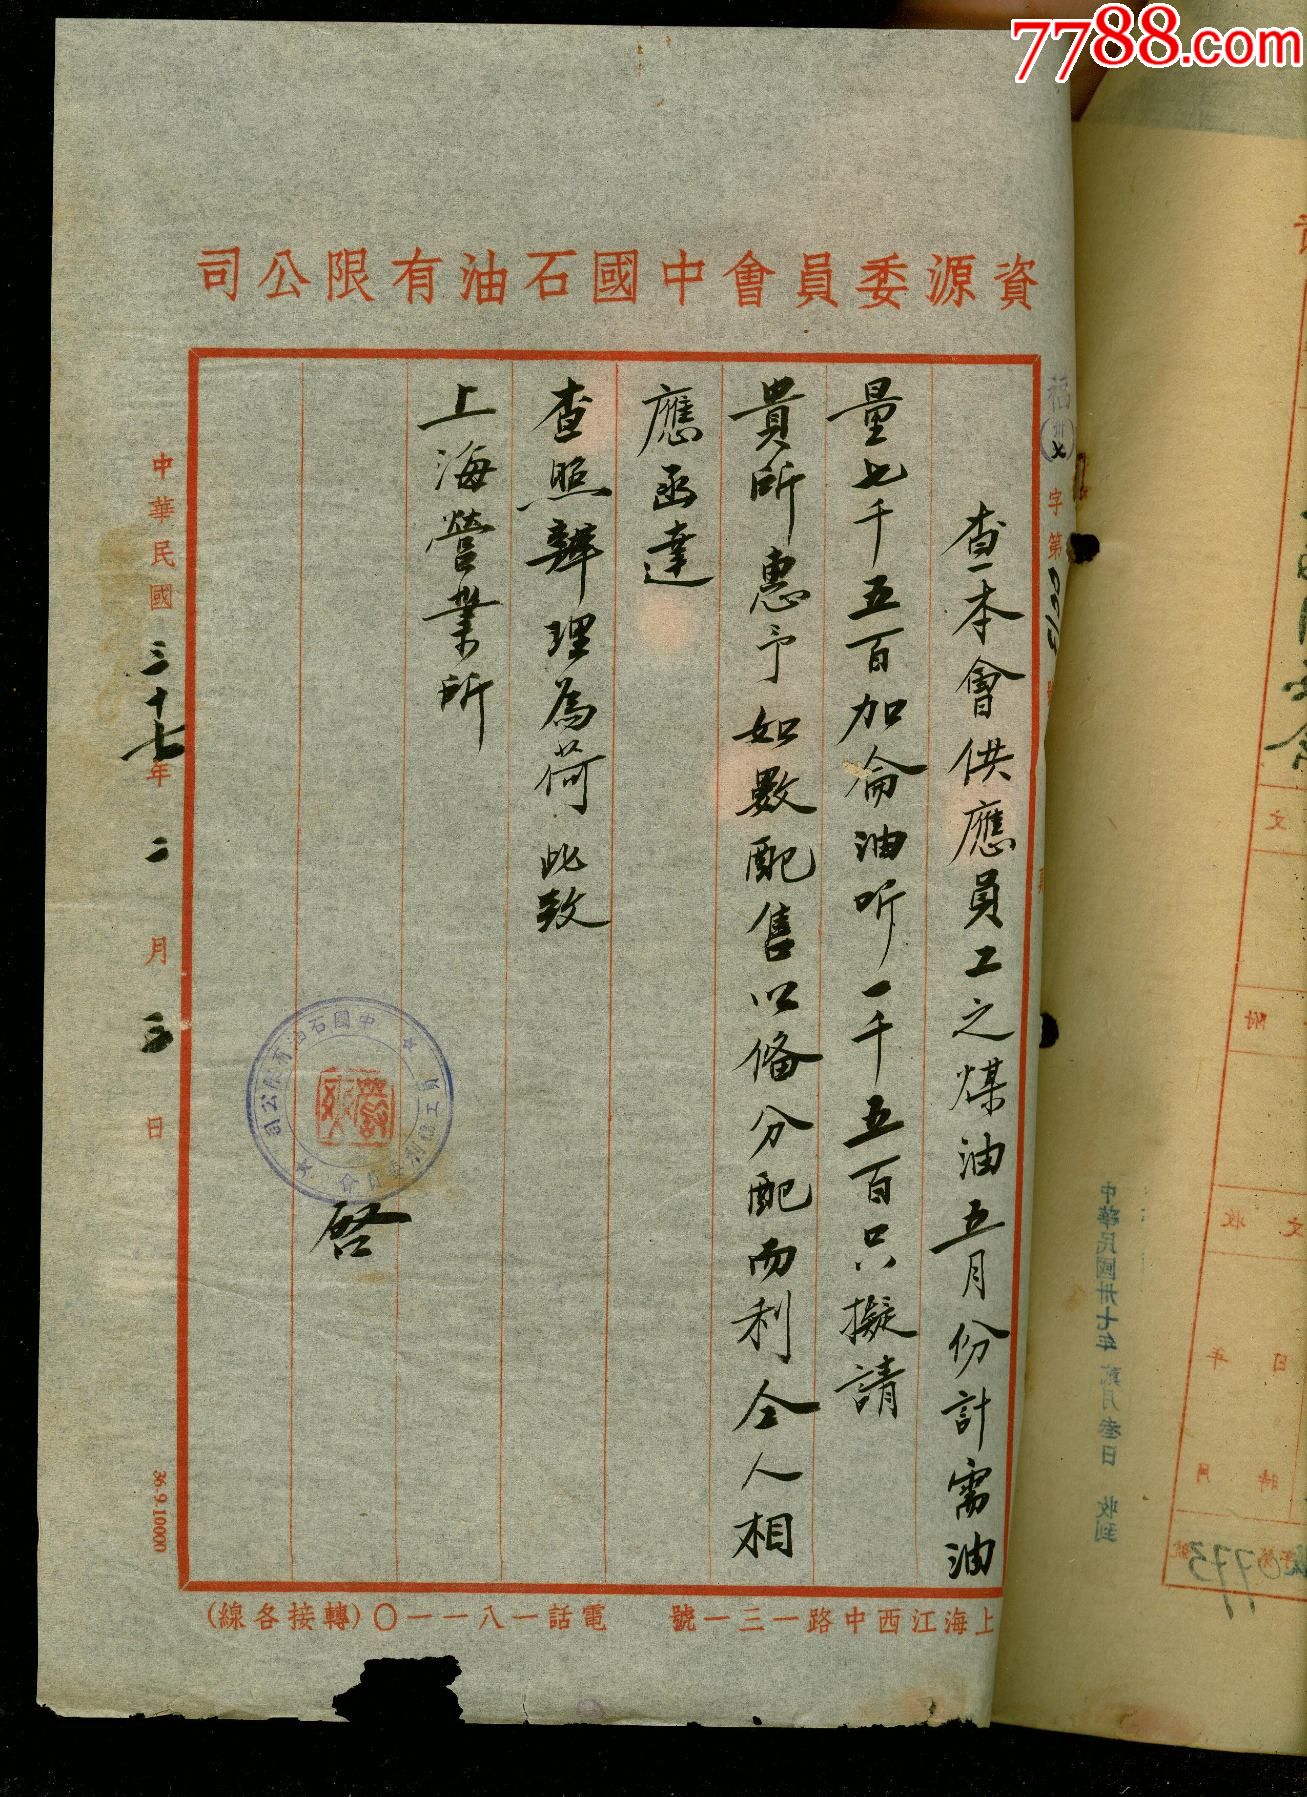 7788.com
資源委員會中國石油有限公司
福(卅七)字第
查本會供應員工之煤油五月份計需油
量七千五百加侖油听一千五百只擬請
貴所惠予如數配售以俻分配而利仝人相
應函達
查照辦理為荷此致
上海營業所
中國石油有限公司
員工福利委員會
啓
中華民國三十七年二月三日
36.9.10000
上海江西中路一三一號 電話一八一一〇(轉接各線)
中華民國卅七年貳月叁日 收到
773